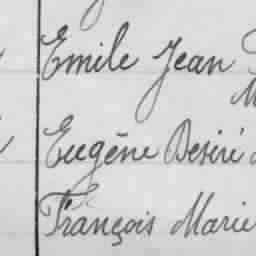 Emile Jean
Eugène Desiré
François Marie